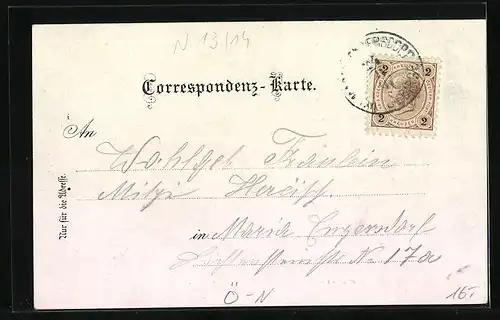 N 13/14
Correspondenz-Karte.
2 2
An
Wohlgeb. Fräulein
Mitzi
in Maria Enzersdorf
No 17a
Nur für die Adresse.
Ö-N
16.-